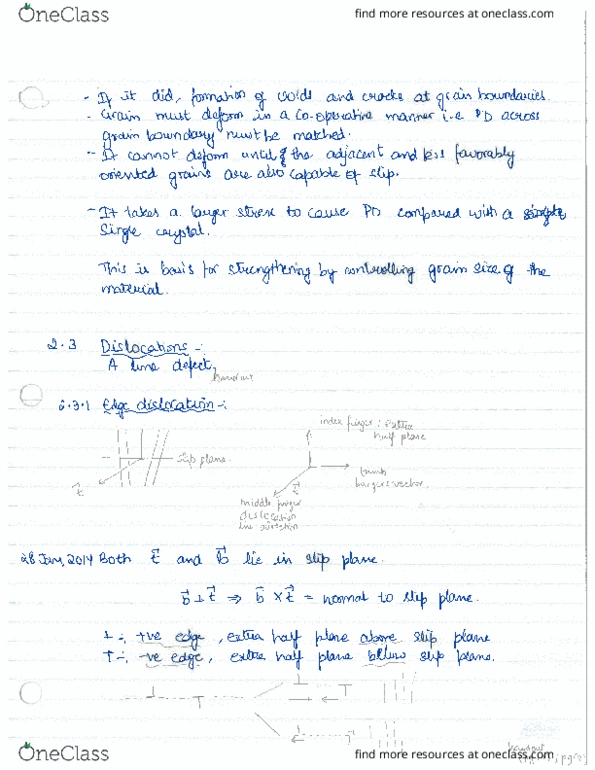 OneClass
find more resources at oneclass.com
- If it did, formation of voids and cracks at grain boundaries.
- Grain must deform in a co-operative manner i.e PD across
grain boundary must be matched.
- It cannot deform until the adjacent and less favorably
oriented grains are also capable of slip.
- It takes a larger stress to cause PD compared with a
single crystal.
This is basis for strengthening by controlling grain size of the
material.
2.3 Dislocations :-
A line defect,
handout
2.3.1 Edge dislocation -:
index finger: extra
half plane
slip plane.
t
tumb
burgers vector.
t
middle finger
dislocation
line direction
28 Jan, 2014 Both t and b lie in slip plane.
b ⊥ t ⇒ b × t = normal to slip plane.
⊥ -: +ve edge, extra half plane above slip plane
T -: -ve edge, extra half plane below slip plane.
⊥ T ⊥ T
⊥
OneClass
find more resources at oneclass.com